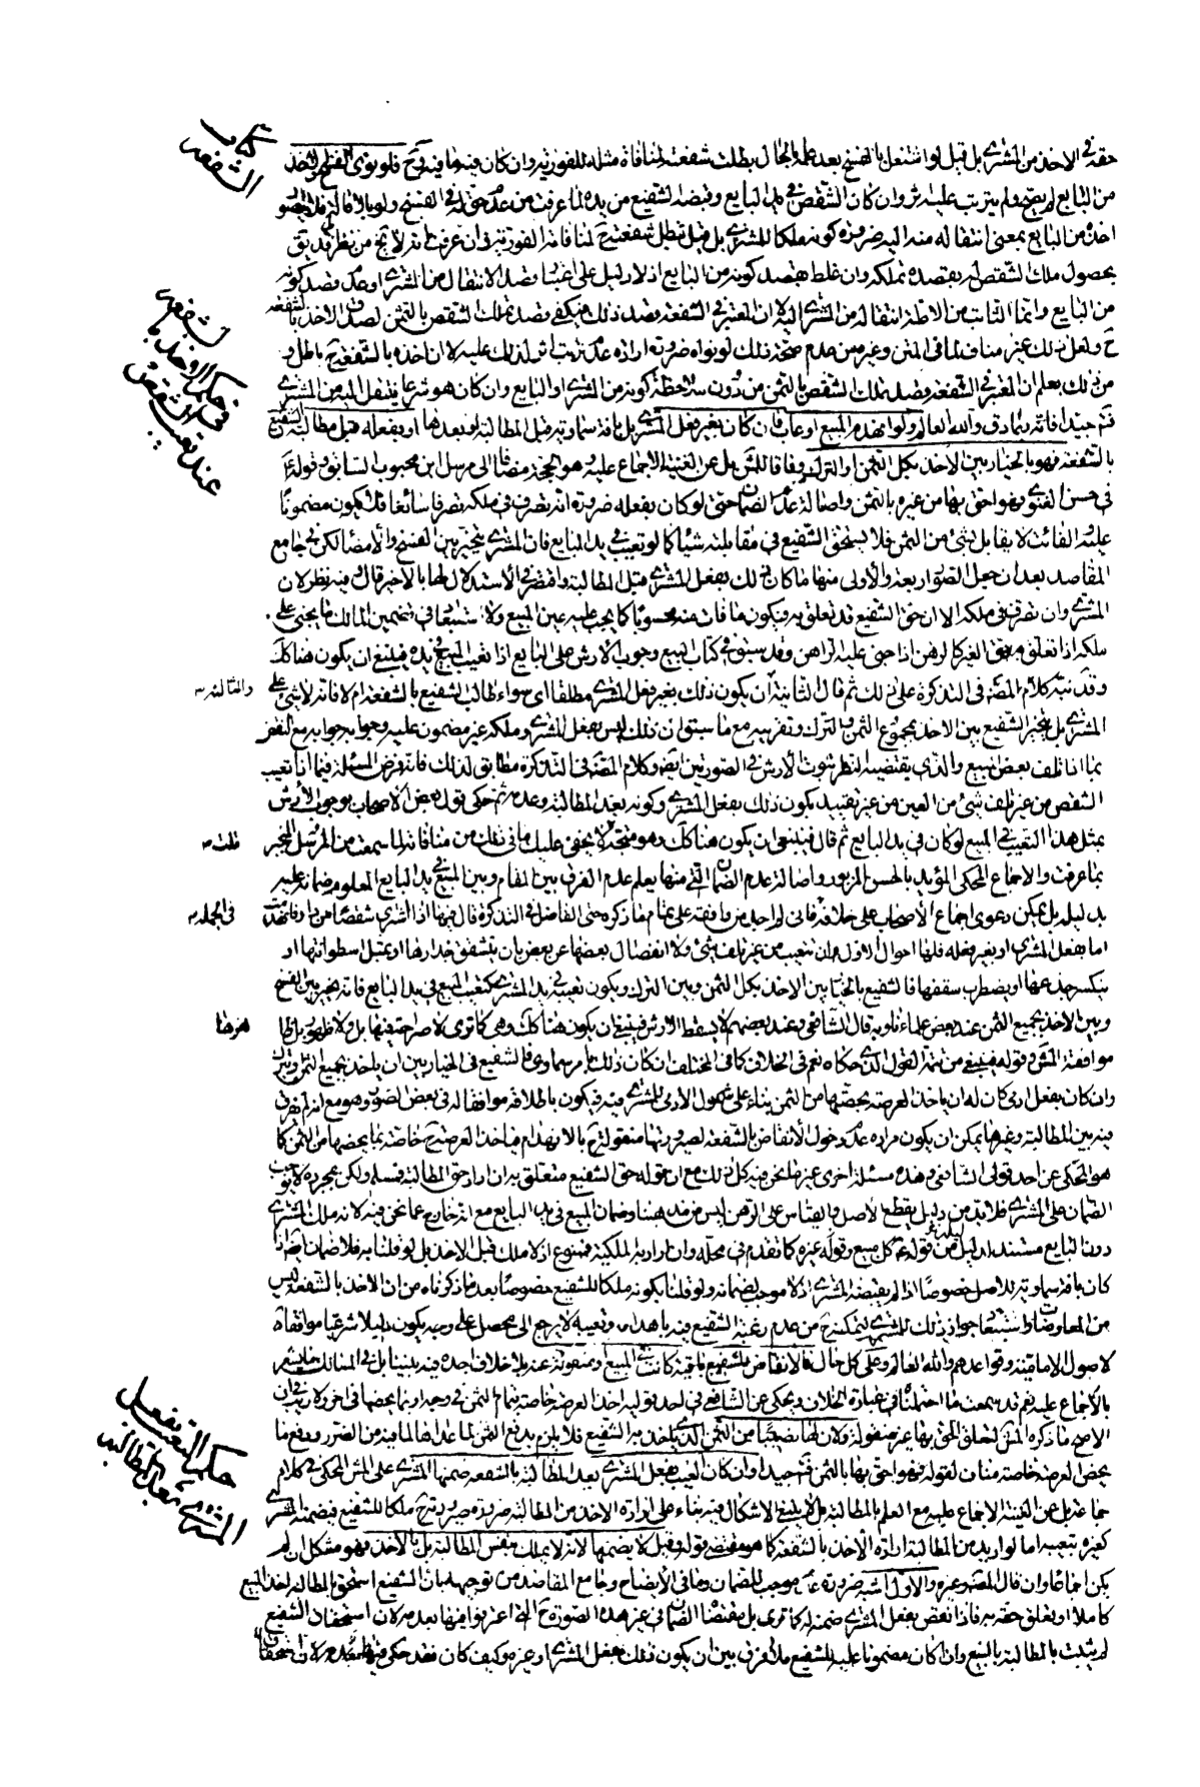 كتاب الشفعة
حقه في الاخذ من المشتري بل قيل لو اشتغل بالفسخ بعد علمه بالحال بطلت شفعته لمنافاة مثله للفورية وان كان فيه ما فيه وح فلو نوى الفسخ
من البايع لم يصح ولم يترتب عليه اثر وان كان الشقص في يد البايع وقبضه الشفيع من يده لما عرفت من عدم حق له في الفسخ ولو بالاقالة
اخذه من البايع بمعنى انتقاله منه اليه ضرورة كونه ملكا للمشتري بل قيل تبطل شفعته ح لمنافاته الفورية وان عرفت انه لا يخ من نظر
بحصول ملك الشقص له بقصده تملكه وان غلط بقصد كونه من البايع اذ لا دليل على اعتبار قصد الانتقال من المشتري او عدم قصد كونه
من البايع وانما الثابت من الادلة انتقاله من المشتري اليه لا ان المعتبر في الشفعة قصد ذلك فيكفي قصد تملك الشقص بالثمن لصدق الاخذ بالشفعة
ح ولعل ذلك غير مناف لما في المتن وغيره من عدم صحة ذلك لو نواه ضرورة ارادة عدم ترتب اثر لذلك عليه لا ان اخذه بالشفعة ح باطل و
من ذلك يعلم ان المعتبر في الشفعة قصد تملك الشقص بالثمن من دون ملاحظة كونه من المشتري او البايع وان كان هو شرعا ينتقل اليه من المشتري
فت جيدا فانه دقيق والله العالم ولو انهدم المبيع او عاب فان كان بغير فعل المشتري بل بافة سماوية قبل المطالبة او بعدها او بفعله قبل مطالبة الشفيع
بالشفعة فهو بالخيار بين الاخذ بكل الثمن او الترك وفاقا للمش بل عن الغنية الاجماع عليه وهو الحجة مضافا الى مرسل ابن محبوب السابق وقوله ع
في حسن الغنوي فهو احق بها من غيره بالثمن واصالة عدم الضمان حتى لو كان بفعله ضرورة انه تصرف في ملكه تصرفا سائغا فلا يكون مضمونا
عليه والفائت لا يقابل بشئ من الثمن فلا يستحق الشفيع في مقابلته شيئا كما لو تعيب في يد البايع فان المشتري يتخير بين الفسخ والامضاء لكن في جامع
المقاصد بعد ان جعل الصور اربعة والاولى منها ما كان ذلك بفعل المشتري قبل المطالبة واقتصر في الاستدلال لها بالاخير قال وفيه نظر لان
المشتري وان تصرف في ملكه الا ان حق الشفيع قد تعلق به فيكون ما فات منه محسوبا كما يجب عليه عين المبيع ولا استبعاد في تضمين المالك ما يجني على
ملكه اذا تعلق به حق الغير كالرهن اذا جنى عليه الراهن وقد سبق في كتاب البيع وجوب الارش على البايع اذا تعيب المبيع في يده فينبغي ان يكون هنا كك
وقد نبه كلام المصنف في التذكرة على ذلك ثم قال الثانية ان يكون ذلك بغير فعل المشتري مطلقا اي سواء طالب الشفيع بالشفعة ام لا فانه لا شئ على
المشتري بل يتخير الشفيع بين الاخذ بمجموع الثمن والترك وتقريبه مع ما سبق ان ذلك ليس بفعل المشتري وملكه غير مضمون عليه وجوابه جوابه مع النقض
بما اذا تلف بعض المبيع والذي يقتضيه النظر ثبوت الارش في الصورتين ايضا وكلام المصنف في التذكرة مطابق لذلك فانه فرض المسئلة فيما اذا تعيب
الشقص من غير تلف شئ من العين من غير تقييد بكون ذلك بفعل المشتري وكونه بعد المطالبة وعدمه ثم حكى قول بعض الاصحاب بوجوب الارش
بمثل هذا التعيب في المبيع لو كان في يد البايع ثم قال فينبغي ان يكون هنا كك وهو متجه قلت لا يخفى عليك ما في ذلك من منافاته لما سمعت من المرسل المنجبر
بما عرفت والاجماع المحكي المؤيد بالحسن المزبور واصالة عدم الضمان التي منها يعلم عدم الفرق بين المقام وبين المبيع في يد البايع المعلوم ضمانه عليه
بدليله بل يمكن دعوى اجماع الاصحاب على خلافه فاني لم اجد من وافقه على تمام ما ذكره حتى الفاضل في التذكرة قال فيها اذا اشترى شقصا من دار فانهدمت
اما بفعل المشتري او بغير فعله فلها احوال الاول ان تتعيب من غير تلف شئ ولا انفصال بعضها عن بعض بان يتشقق جدارها او تميل اسطوانتها او
ينكسر جذعها او يضطرب سقفها فالشفيع بالخيار بين الاخذ بكل الثمن وبين الترك ويكون تعيبه في يد المشتري كتعيب المبيع في يد البايع فانه يتخير بين الفسخ
وبين الاخذ بجميع الثمن عند بعض علمائنا وبه قال الشافعي وعند بعضهم لا يسقط الارش فينبغي ان يكون هنا كك وهي كما ترى لا صراحة فيها بل ولا ظهور بل ظاهرها
موافقة المش وقوله فينبغي من تتمة القول الذي حكاه نعم في الخلاف كما في المختلف ان كان ذلك بامر سماوي فالشفيع في الخيار بين ان ياخذ بجميع الثمن ويترك
وان كان بفعل ادمي كان له ان ياخذ العرصة بحصتها من الثمن بناء على شمول الادمي للمشتري فيه فيكون باطلاقه موافقا له في بعض الصور وهو مع انه لم يفرق
فيه بين المطالبة وغيرها يمكن ان يكون مراده عدم دخول الانقاض بالشفعة لصيرورتها منقولة ح بالانهدام فياخذ العرصة ح خاصة بما يخصها من الثمن كما
هو المحكي عن احد قولي الشافعي وهذه مسئلة اخرى غير ما نحن فيه كل ذلك مع ان قوله حق الشفيع متعلق به ان اراد حق المطالبة فمسلم ولكن بمجرده لا يوجب
الضمان على المشتري فلا بد من دليل يقطع الاصل والقياس على الرهن ليس من مذهبنا وضمان المبيع في يد البايع مع انه خارج عما نحن فيه لانه ملك المشتري
دون البايع مستنده الدليل من قوله ع كل مبيع وقوله غيره كما تقدم في محله وان اراد به الملكية فممنوع اذ لا ملك قبل الاخذ بل لو قلنا به فلا ضمان ايضا اذا
كان بافة سماوية للاصل خصوصا اذا لم يقبضه المشتري اذ لا موجب لضمانه ولو قلنا بكونه ملكا للشفيع خصوصا بعد ما ذكرناه من ان الاخذ بالشفعة ليس
من المعاوضات واستبعاد جواز ذلك للمشتري ليتمكن ح من عدم رغبة الشفيع فيه باهدامه وتعييبه لا يرجع الى محصل على وجه يكون دليلا شرعيا موافقا
لاصول الامامية وقواعدهم والله العالم وعلى كل حال فالانقاض للشفيع باقية كانت في المبيع او منقولة عنه بلا خلاف اجده فيه بيننا بل في المسالك ما يشعر
بالاجماع عليه نعم قد سمعت ما احتملناه في عبارة الخلاف ويحكى عن الشافعي في احد قوليه اخذ العرصة خاصة بتمام الثمن في وجه او بما يخصها في اخر ولا ريب في ان
الاصح ما ذكره المش لتعلق الحق بها غير منقولة ولان لها نصيبا من الثمن الذي ياخذ به الشفيع فلا يلزم بدفع الثمن لما عداها لما فيه من الضرر ودفع ما
يخص العرصة خاصة مناف لقوله ع فهو احق بها بالثمن فت جيدا وان كان العيب بفعل المشتري بعد المطالبة بالشفعة ضمنها المشتري على المش المحكي في كلام
جماعة بل عن الغنية الاجماع عليه مع العلم بالمطالبة بل لا ينبغي الاشكال فيه بناء على ارادة الاخذ من المطالبة ضرورة صيرورته ح ملكا للشفيع فيضمنه المشتري
كغيره بتعييبه اما لو اريد من المطالبة ارادة الاخذ بالشفعة كما هو مقتضى قوله وقيل لا يضمنها لانه لا يملك بنفس المطالبة بل بالاخذ فهو مشكل ان لم
يكن اجماعا وان قال المصنف وغيره والاول اشبه ضرورة عدم موجب للضمان وما في الايضاح وجامع المقاصد من توجيهه بان الشفيع استحق بالمطالبة اخذ المبيع
كاملا او تعلق حقه به فاذا نقص بفعل المشتري ضمنه له كما ترى بل مقتضاه الضمان في غير هذه الصورة ح التي اعترفوا فيها بعدمه لان استحقاق الشفيع
لم يثبت بالمطالبة بل بالبيع وان كان مضمونا عليه للشفيع فلا فرق بين ان يكون ذلك بفعل المشتري او غيره وكيف كان فقد حكي
الشفعة
في حكم الاخذ با
عند تعيب الشقص
والثالثة
قلت
في الجملة
هرها
حكم التعيب بفعل
المشتري بعد المطالبة